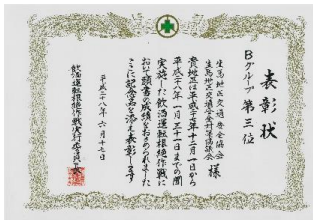 表彰状
Bグループ 第三位
生馬地区交通安全協会
生馬地区交通安全対策協議会 様
貴地区は平成二十七年十二月一日から
平成二十八年一月三十一日までの間
実施した飲酒運転根絶作戦に
おいて頭書の成績をおさめられました
ここに記念品を添え表彰します
平成二十八年六月十七日
飲酒運転根絶作戦実行委員会